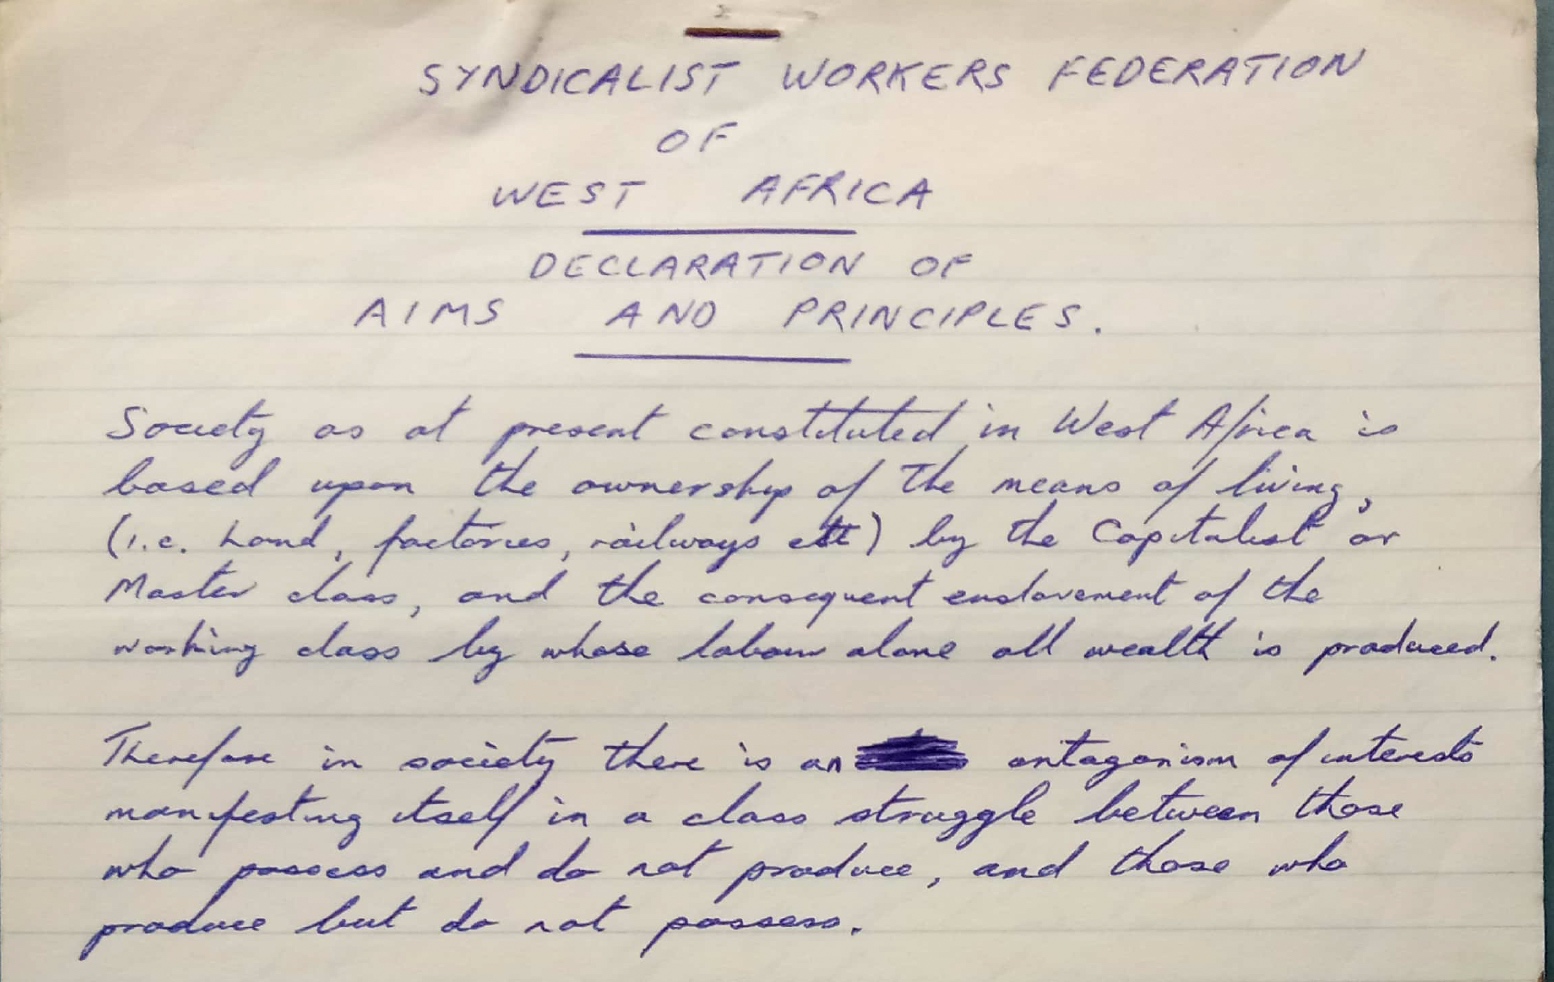 SYNDICALIST WORKERS FEDERATION
OF
WEST AFRICA
DECLARATION OF
AIMS AND PRINCIPLES.
Society as at present constituted in West Africa is
based upon the ownership of the means of living,
(i.e. Land, factories, railways etc) by the Capitalist or
Master class, and the consequent enslavement of the
working class by whose labour alone all wealth is produced.
Therefore in society there is an antagonism of interests
manifesting itself in a class struggle between those
who possess and do not produce, and those who
produce but do not possess.